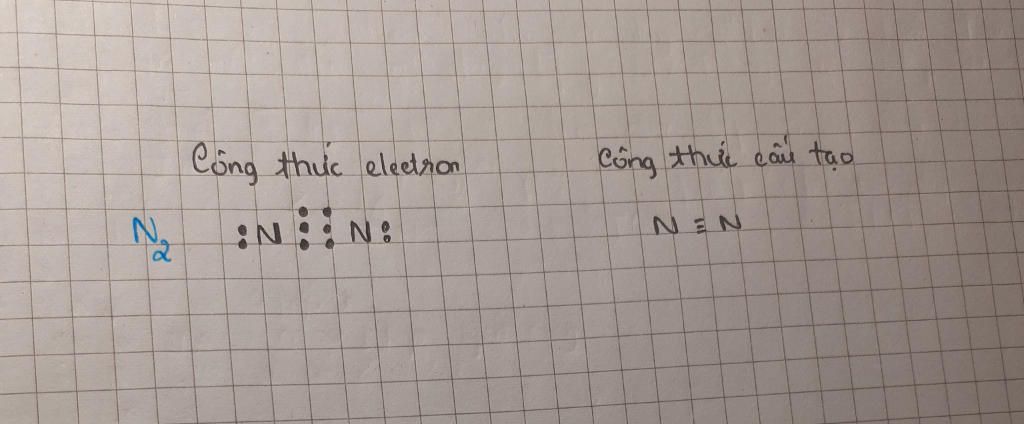 Công thức electron Công thức cấu tạo
N₂ :N⋮⋮N: N≡N